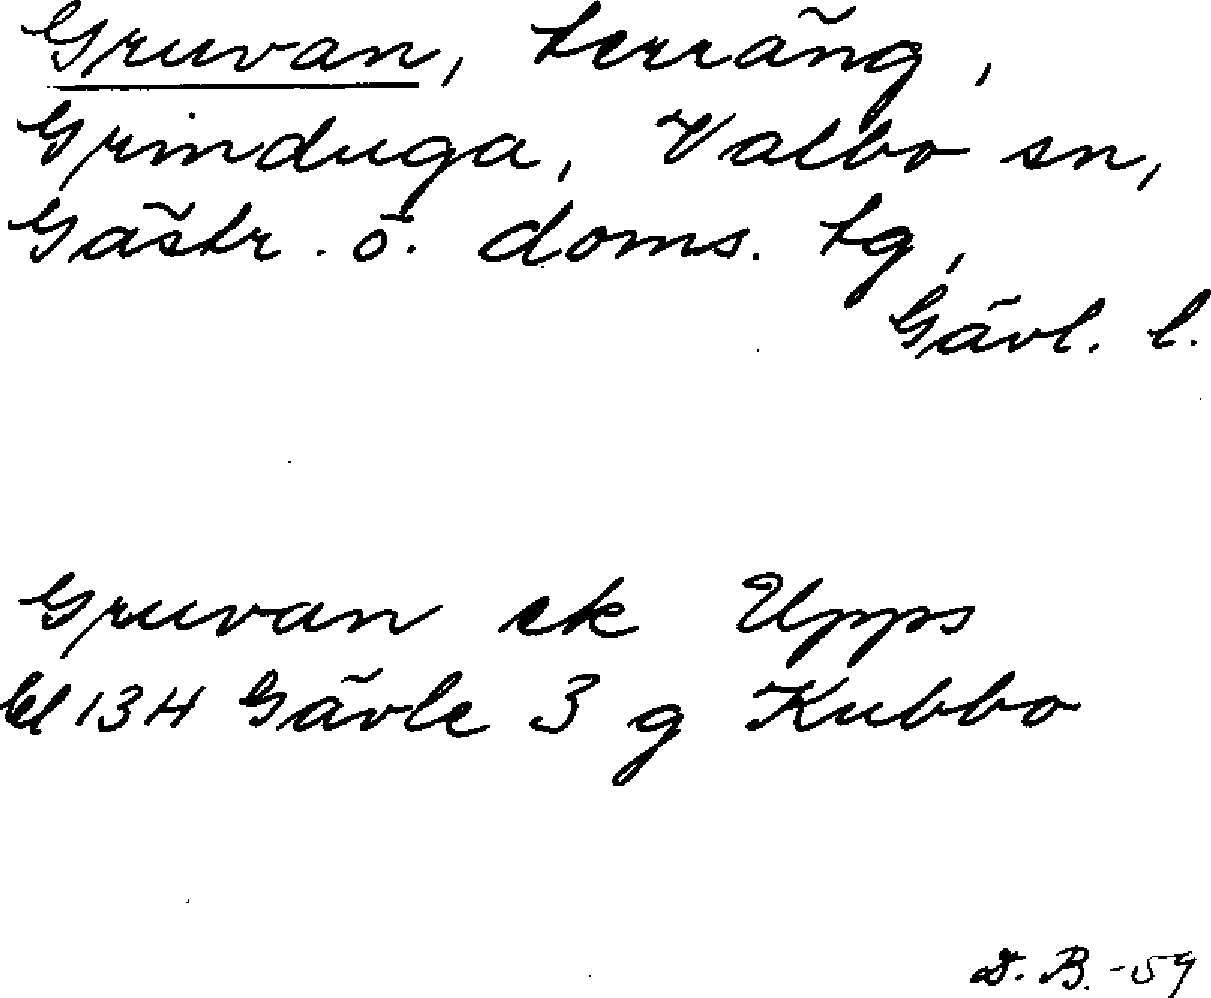 Gruvan, terräng,
Grinduga, Valbo sn,
Gästr. ö. doms. tg,
Gävl. l.
Gruvan ek Upps
bl 134 Gävle 3 g Kubbo
D. B. -59